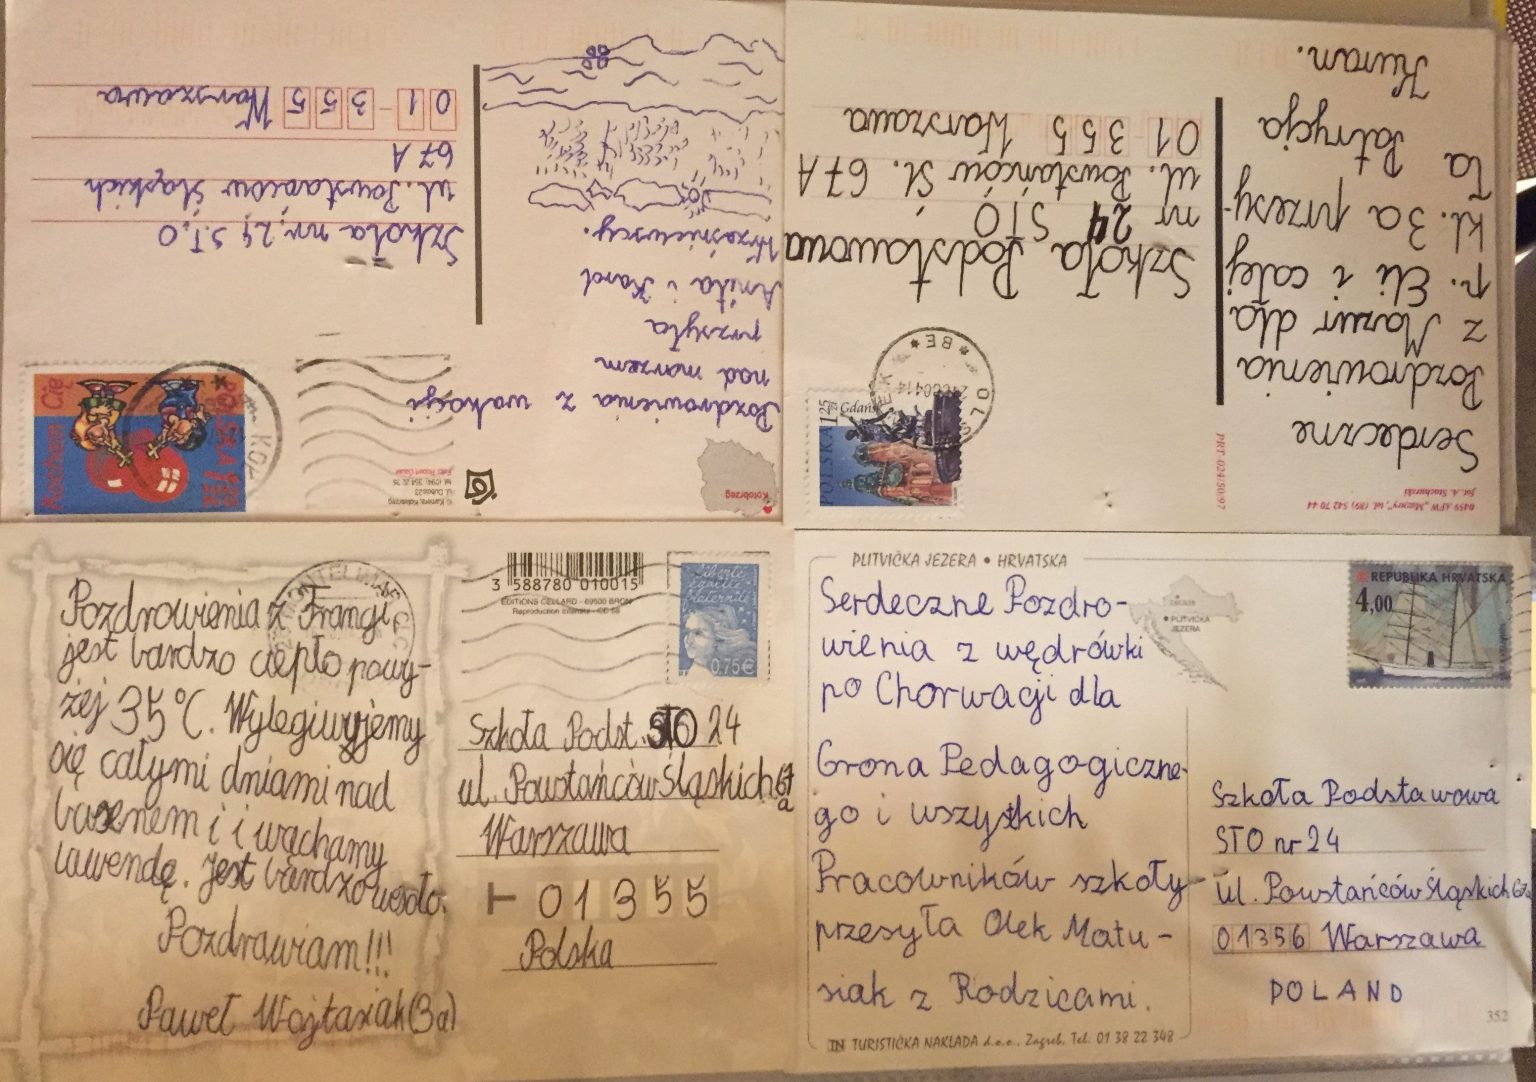 Kołobrzeg
Pozdrowienia z wakacji
nad morzem
przsyła
Anita i Karol
Wrześniewscy.
Kocham Cię
POLSKA
Szkoła nr. 24 S.T.O
ul. Powstańców Śląskich
67 A
01-355 Warszawa
0459 AFW „Mazury", tel. (89) 542 70 44
fot. A. Stachurski
PRT-024/50/97
Serdeczne
Pozdrowienia
z Mazur dla
p. Eli i całej
kl. 3a przesy-
ła Patrycja
Kuran.
POLSKA 1,25 zł
Gdańsk
Szkoła Podstawowa
nr 24 STO
ul. Powstańców Śl. 67A
01 355 Warszawa
Pozdrowienia z Frangi
jest bardzo ciepło powy-
żej 35°C. Wylegiwujemy
się całymi dniami nad
basenem i i wąchamy
lawendę. Jest bardzo wesoło.
Pozdrawiam!!!
Paweł Wojtasiak (3a)
3 588780 010015
Reproduction interdite
Liberté Égalité Fraternité
0,75€
Szkoła Podst. STO 24
ul. Powstańców Śląskich 67
a
Warszawa
01355
Polska
PLITVIČKA JEZERA • HRVATSKA
PLITVIČKA
JEZERA
Serdeczne Pozdro-
wienia z wędrówki
po Chorwacji dla
Grona Pedagogiczne-
go i wszystkich
Pracowników szkoły
przesyła Olek Matu-
siak z Rodzicami.
REPUBLIKA HRVATSKA
4,00
Szkoła Podstawowa
STO nr 24
ul. Powstańców Śląskich 67a
01356 Warszawa
POLAND
352
IN TURISTIČKA NAKLADA d.o.o., Zagreb, Tel. 01 38 22 348